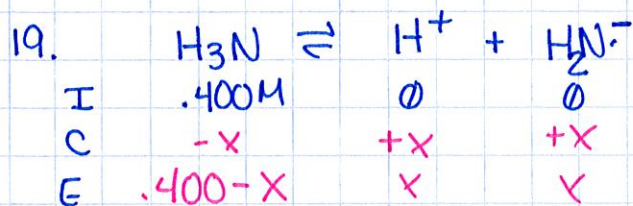 19. H₃N ⇌ H⁺ + H₂N:⁻
I .400M 0 0
C -X +X +X
E .400-X X X